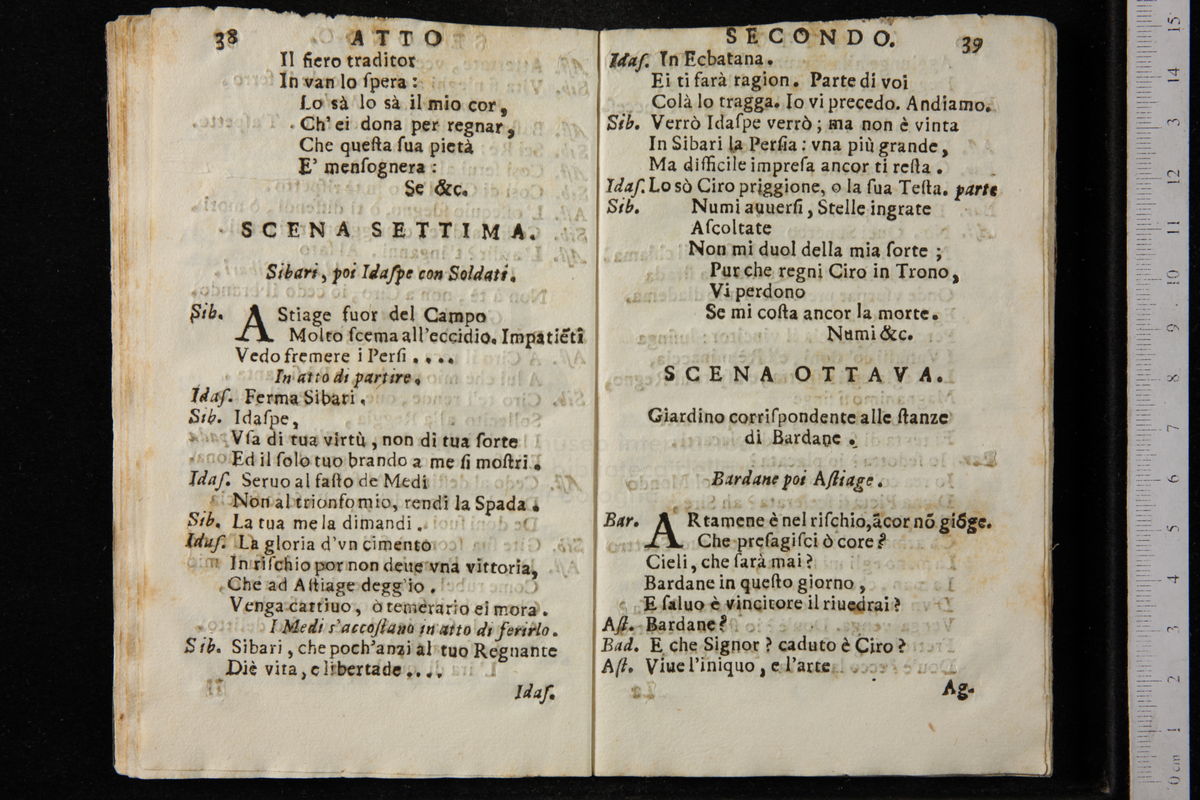 38 ATTO
Il fiero traditor
In van lo ſpera :
Lo sà lo sà il mio cor,
Ch' ei dona per regnar,
Che queſta ſua pietà
E' menſognera :
Se &c.
SCENA SETTIMA.
Sibari, poi Idaſpe con Soldati.
Sib. AStiage fuor del Campo
Molto ſcema all'eccidio. Impatiẽti
Vedo fremere i Perſi . . . .
In atto di partire.
Idaſ. Ferma Sibari.
Sib. Idaſpe,
Vſa di tua virtù, non di tua ſorte
Ed il ſolo tuo brando a me ſi moſtri.
Idaſ. Seruo al faſto de Medi
Non al trionfo mio, rendi la Spada.
Sib. La tua me la dimandi.
Idaſ. La gloria d'vn cimento
In riſchio por non deue vna vittoria,
Che ad Aſtiage degg'io.
Venga cattiuo, ò temerario ei mora.
I Medi s'accoſtano in atto di ferirlo.
Sib. Sibari, che poch'anzi al tuo Regnante
Diè vita, e libertade . . . .
Idaſ.
SECONDO. 39
Idaſ. In Ecbatana.
Ei ti farà ragion. Parte di voi
Colà lo tragga. Io vi precedo. Andiamo.
Sib. Verrò Idaſpe verrò ; ma non è vinta
In Sibari la Perſia : vna più grande,
Ma difficile impreſa ancor ti reſta.
Idaſ. Lo sò Ciro priggione, o la ſua Teſta. parte
Sib. Numi auuerſi, Stelle ingrate
Aſcoltate
Non mi duol della mia ſorte ;
Pur che regni Ciro in Trono,
Vi perdono
Se mi coſta ancor la morte.
Numi &c.
SCENA OTTAVA.
Giardino corriſpondente alle ſtanze
di Bardane.
Bardane poi Aſtiage.
Bar. ARtamene è nel riſchio, ãcor nõ giõge.
Che preſagiſci ò core ?
Cieli, che ſarà mai ?
Bardane in queſto giorno,
E ſaluo è vincitore il riuedrai ?
Aſt. Bardane ?
Bad. E che Signor ? caduto è Ciro ?
Aſt. Viue l'iniquo, e l'arte
Ag-